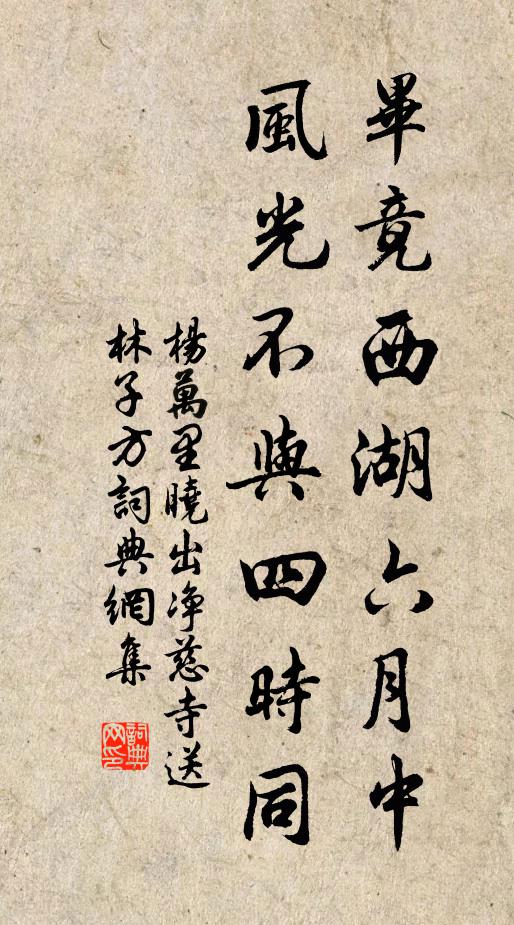 畢竟西湖六月中
風光不與四時同
楊萬里曉出淨慈寺送
林子方詞典網集
詞典
网印